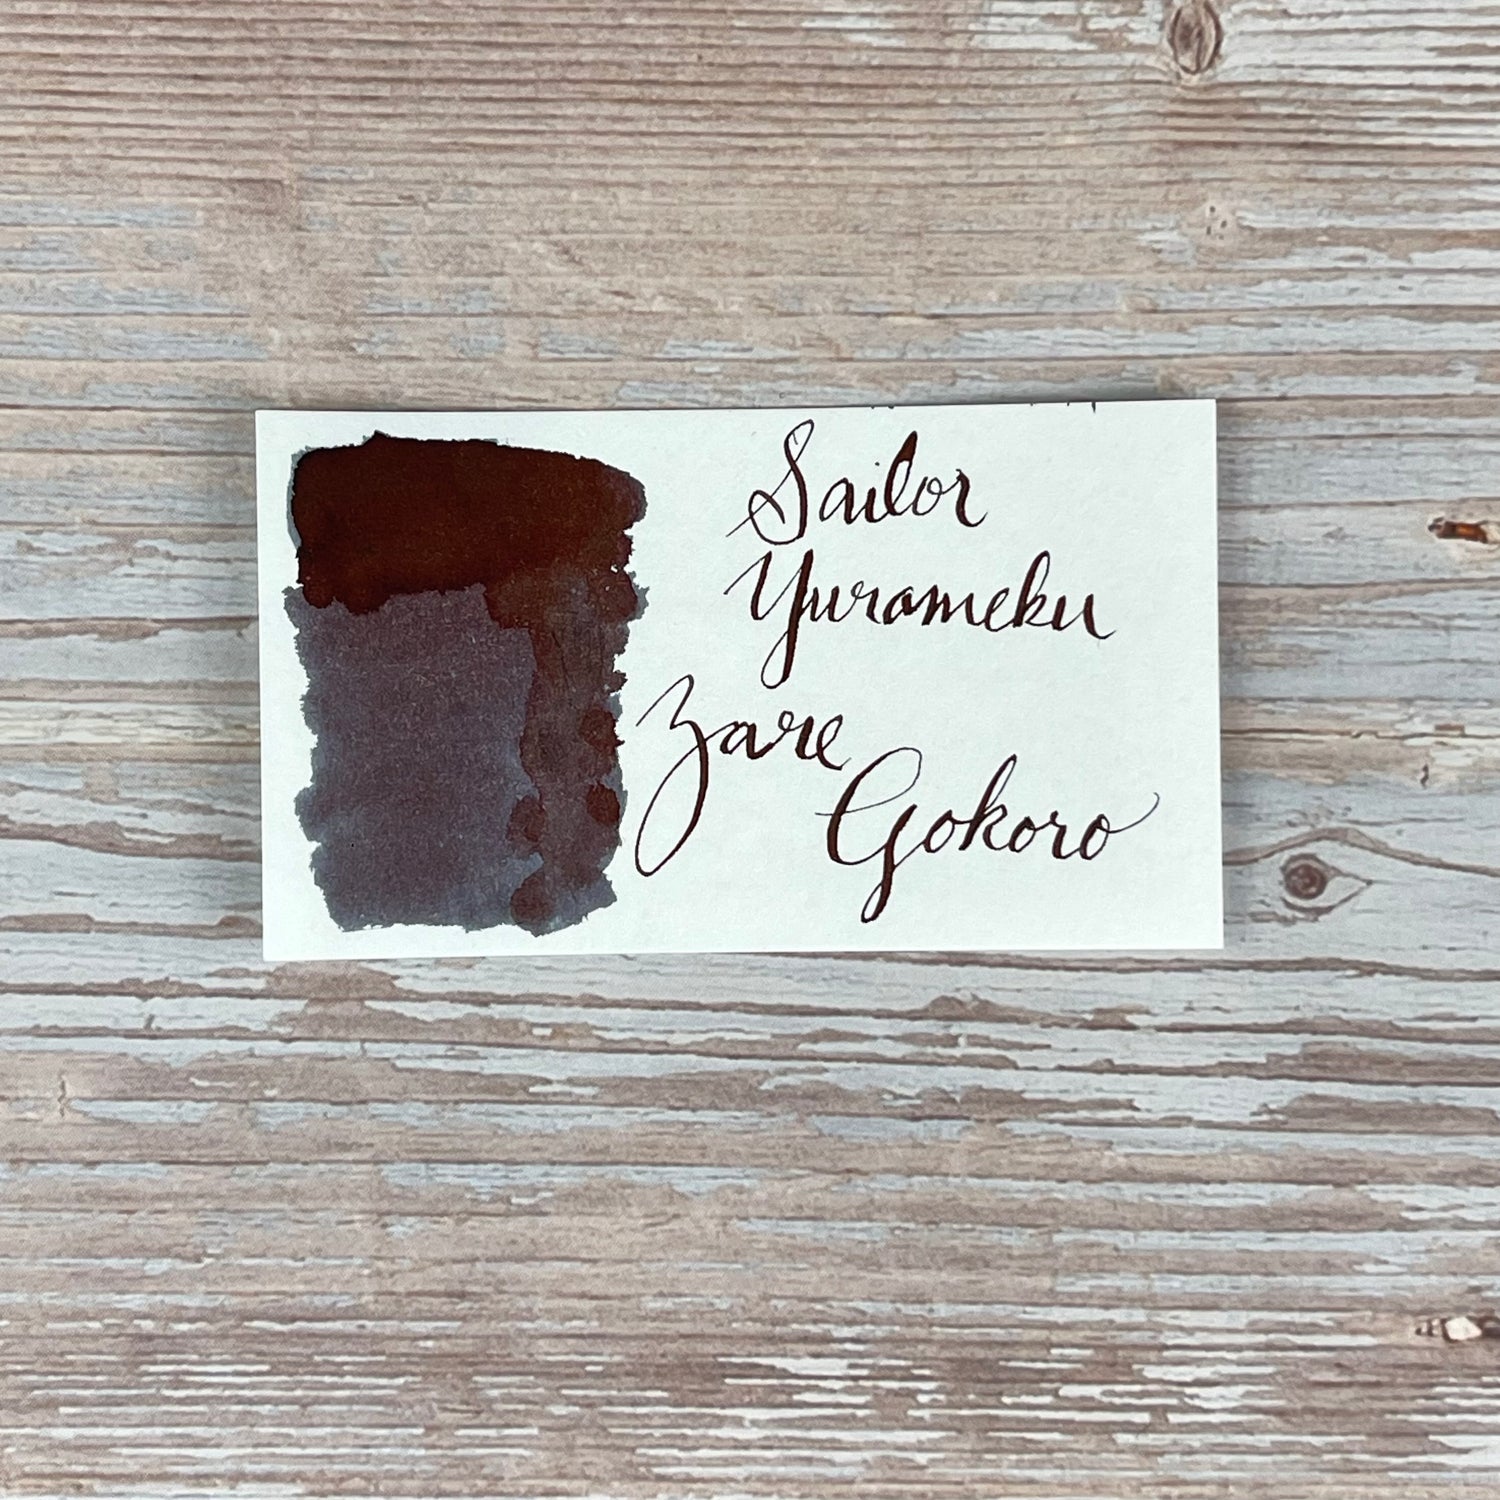 Sailor
Yurameku
Zare
Gokoro